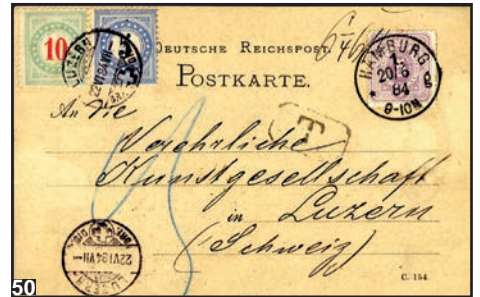 10
5
LUZERN
22 VI 84 VII
DEUTSCHE REICHSPOST.
POSTKARTE.
HAMBURG
1.
20/6
84
8-10N
An die
T
Verehrliche
Kunstgesellschaft
in Luzern
(Schweiz)
22 VI 84 VII
LUZERN
C. 154.
50